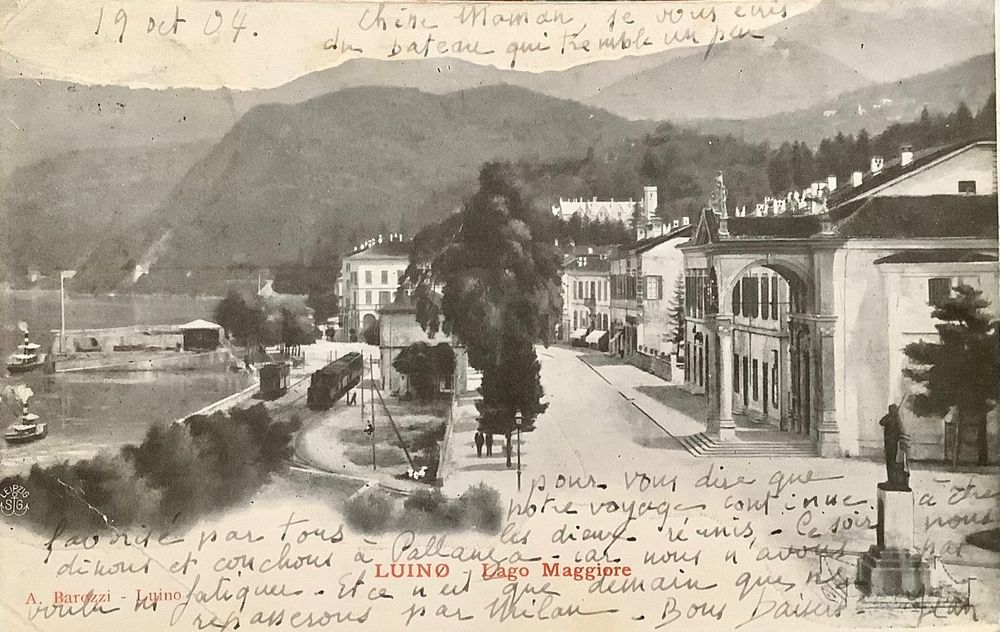 19 oct 04.
Chère Maman, je vous écris
du bateau qui tremble un peu
pour vous dire que
notre voyage continue à être
favorisé par tous les dieux réunis. Ce soir nous
dinons et couchons à Pallanza car nous n'avons pas
voulu fatiguer. Et ce n'est que demain que
repasserons par Milan. Bons baisers
LUINO - Lago Maggiore
A. Barozzi - Luino
LEIPZIG